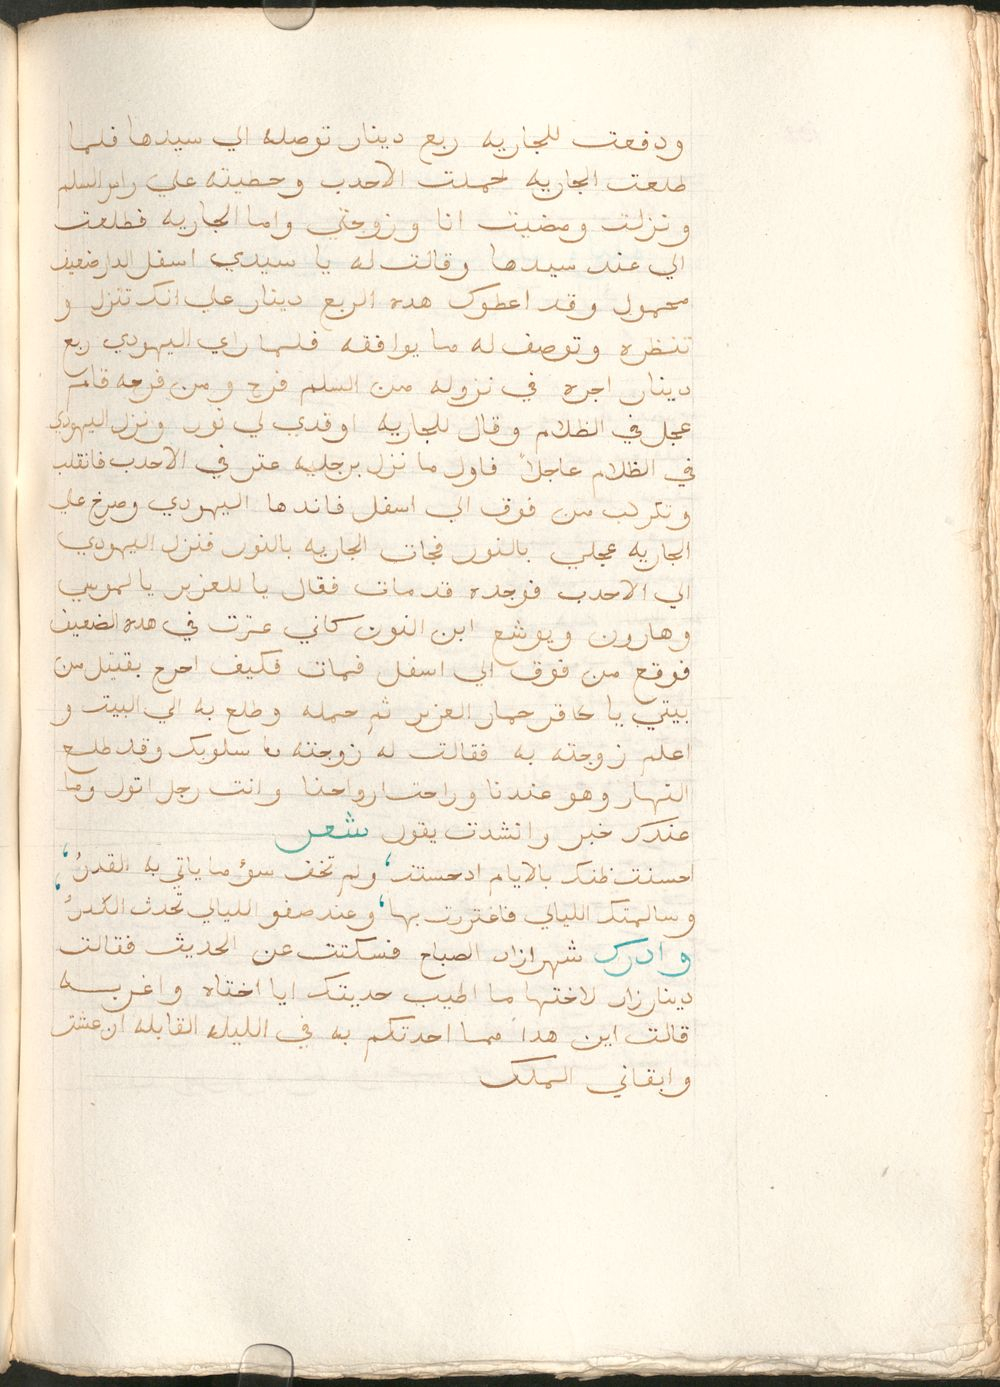 ودفعت للجاريه ربع دينار توصله الي سيدها فلما
طلعت الجاريه حملت الاحدب وحطيته علي راس السلم
ونزلت ومضيت انا وزوجتي واما الجاريه فطلعت
الي عند سيدها وقالت له يا سيدي اسفل الدار ضعيف
محمول وقد اعطوك هده الربع دينار علي انك تنزل و
تنظره وتوصف له ما يوافقه فلما راي اليهودي ربع
دينار اجره في نزوله من السلم فرح ومن فرحه قام
عجل في الظلام وقال للجاريه اوقدي لي نور ونزل اليهودي
في الظلام عاجلاً فاول ما نزل برجليه عتر في الاحدب فانقلب
وتكركب من فوق الي اسفل فاندها اليهودي وصرخ علي
الجاريه عجلي بالنور فجات الجاريه بالنور فنزل اليهودي
الي الاحدب فوجده قد مات فقال يا للعزير يا لموسي
وهارون ويوشع ابن النون كاني عترت في هده الضعيف
فوقع من فوق الي اسفل فمات فكيف اخرج بقتيل من
بيتي يا حافر حمار العزير ثم حمله وطلع به الي البيت و
اعلم زوجته به فقالت له زوجته ما سلوبك وقد طلع
النهار وهو عندنا وراحت ارواحنا وانت رجل اتول وما
عندك خبر وانشدت يقول شعر
احسنت ظنك بالايام ادحسنت، ولم تخف سؤ ما ياتي به القدرُ،
وسالمتك الليالي فاغتررت بها، وعند صفو الليالي تحدث الكدرُ،
وادرك شهرازاد الصباح فسكتت عن الحديث فقالت
دينارزاد لاختها ما اطيب حديتك ايا اختاه واغربه
قالت اين هدا مما احدتكم به في الليله القابله ان عشت
وابقاني الملك